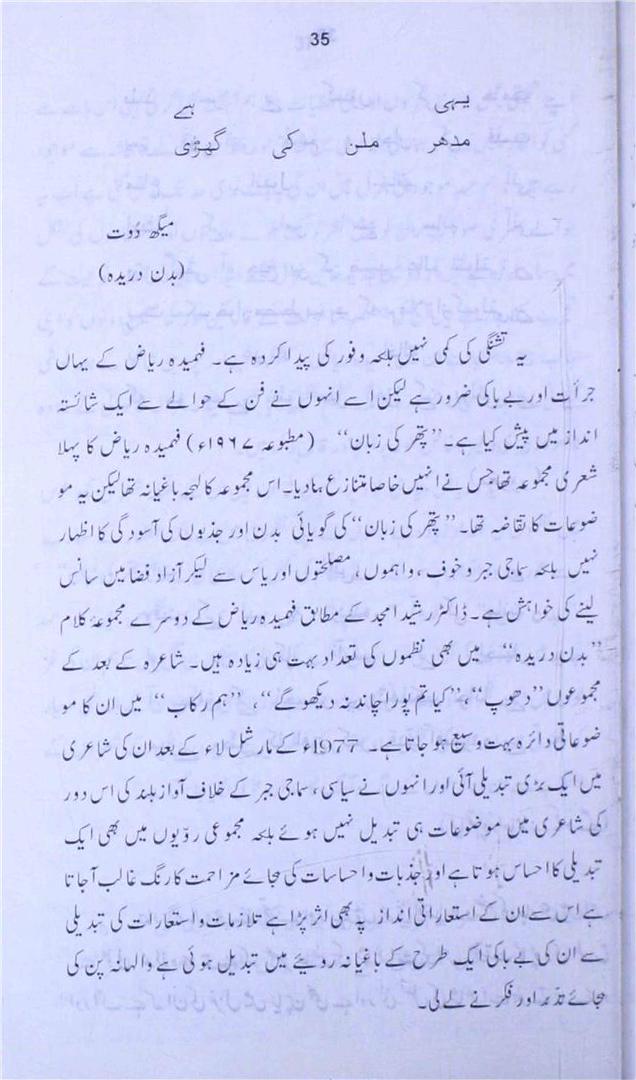 35
یہی ہے
مدھر ملن کی گھڑی
میگھ دُوت
(بدن دریدہ)
یہ تشنگی کی کمی نہیں بلکہ وفور کی پیدا کردہ ہے۔ فہمیدہ ریاض کے یہاں
جرأت اور بے باکی ضرور ہے لیکن اسے انہوں نے فن کے حوالے سے ایک شائستہ
انداز میں پیش کیا ہے۔ ’’پتھر کی زبان‘‘ (مطبوعہ ۱۹۶۷ء) فہمیدہ ریاض کا پہلا
شعری مجموعہ تھا جس نے انہیں خاصا متنازع بنا دیا۔ اس مجموعہ کا لہجہ باغیانہ تھا لیکن یہ مو
ضوعات کا تقاضہ تھا۔ ’’پتھر کی زبان‘‘ کی گویائی بدن اور جذبوں کی آسودگی کا اظہار
نہیں بلکہ سماجی جبر و خوف، واہموں، مصلحتوں اور یاس سے لیکر آزاد فضا میں سانس
لینے کی خواہش ہے۔ ڈاکٹر رشید امجد کے مطابق فہمیدہ ریاض کے دوسرے مجموعۂ کلام
’’بدن دریدہ‘‘ میں بھی نظموں کی تعداد بہت ہی زیادہ ہیں۔ شاعرہ کے بعد کے
مجموعوں ’’دھوپ‘‘، ’’کیا تم پورا چاند نہ دیکھو گے‘‘، ’’ہم رکاب‘‘ میں ان کا مو
ضوعاتی دائرہ بہت وسیع ہو جاتا ہے۔ 1977ء کے مارشل لاء کے بعد ان کی شاعری
میں ایک بڑی تبدیلی آئی اور انہوں نے سیاسی، سماجی جبر کے خلاف آواز بلند کی اس دور
کی شاعری میں موضوعات ہی تبدیل نہیں ہوئے بلکہ مجموعی رویّوں میں بھی ایک
تبدیلی کا احساس ہوتا ہے اور جذبات و احساسات کی بجائے مزاحمت کا رنگ غالب آ جاتا
ہے اس سے ان کے استعاراتی انداز پہ بھی اثر پڑا ہے تلازمات و استعارات کی تبدیلی
سے ان کی بے باکی ایک طرح کے باغیانہ روئیے میں تبدیل ہوئی ہے والہانہ پن کی
بجائے تدبر اور فکر نے لے لی۔